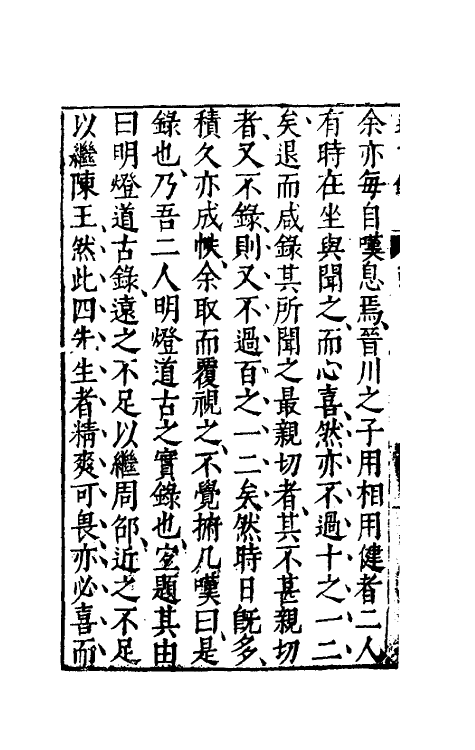 余亦每自嘆息焉、晉川之子用相用健者二人
有時在坐與聞之、而心喜、然亦不過十之一二
矣、退而咸錄其所聞之最親切者、其不甚親切
者、又不錄、則又不過百之一二矣、然時日既多、
積久亦成帙、余取而覆視之、不覺撫几嘆曰、是
錄也、乃吾二人明燈道古之實錄也、宜題其由
曰明燈道古錄、遠之不足以繼周邵、近之不足
以繼陳王、然此四先生者精爽可畏、亦必喜而